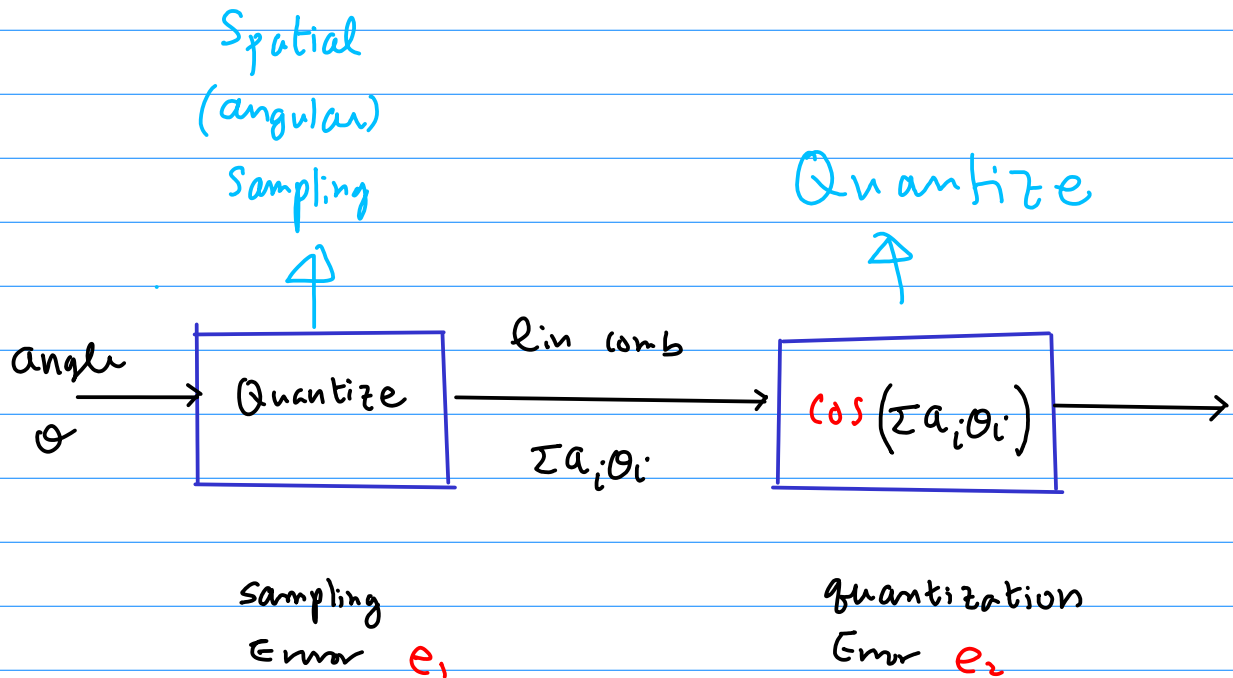 Spatial
(angular)
Sampling
Quantize
angle
θ
Quantize
lin comb
Σaᵢθᵢ
cos(Σaᵢθᵢ)
sampling
Error e₁
quantization
Error e₂